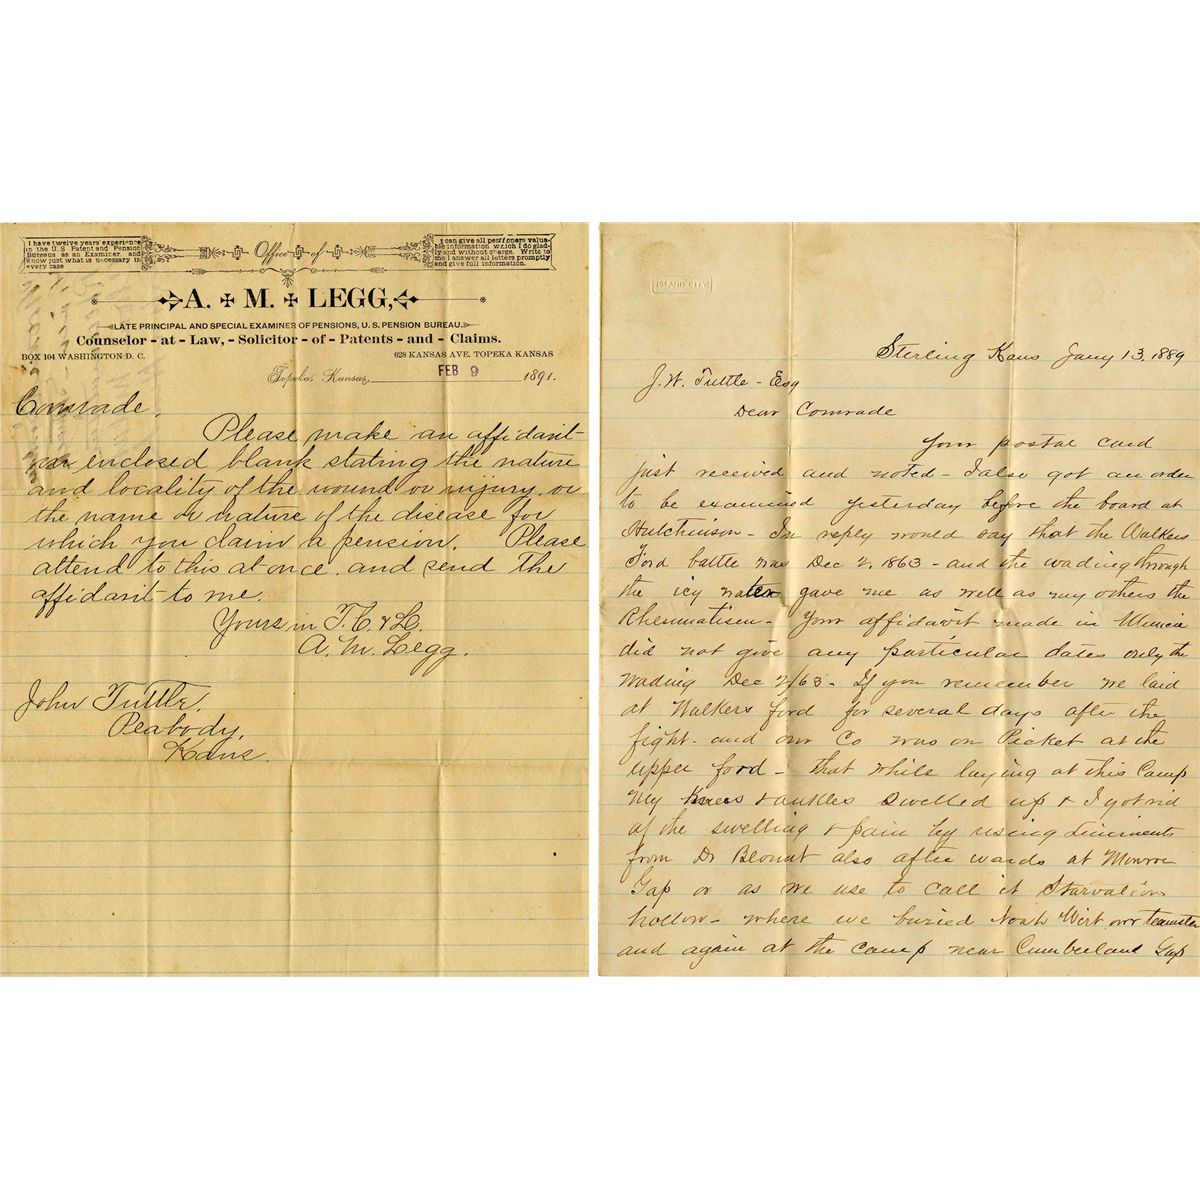 I have twelve years' experience
in the U. S Patent and Pension
Bureaus as an Examiner and
know just what is necessary in
every case
Office of
I can give all pensioners valua-
ble information which I do glad-
ly and without charge. Write to
me I answer all letters promptly
and give full information.
A. M. LEGG,
LATE PRINCIPAL AND SPECIAL EXAMINER OF PENSIONS, U. S. PENSION BUREAU.
Counselor - at - Law, - Solicitor - of - Patents - and - Claims.
BOX 104 WASHINGTON D. C.
628 KANSAS AVE. TOPEKA KANSAS
Topeka, Kansas, FEB 9 1891.
Comrade.
Please make an affidavit
on enclosed blank stating the nature
and locality of the wound or injury, or
the name or nature of the disease for
which you claim a pension. Please
attend to this at once. and send the
affidavit to me.
Yours in F. C. & L.
A. M. Legg.
John Tuttle.
Peabody,
Kans.
ISLAND CITY
Sterling Kans Jany 13. 1889
J. W. Tuttle - Esq
Dear Comrade
Your postal card
just received and noted - I also got an order
to be examined yesterday before the board at
Hutchinson - In reply would say that the Walkers
Ford battle was Dec 2, 1863 - and the wading through
the icy water gave me as well as my others the
Rheumatism - Your affidavit made in
did not give any particular dates only the
wading Dec 2/63 - If you remember we laid
at Walkers ford for several days after the
fight - and our Co was on Picket at the
upper ford - that while laying at this Camp
My Knees & ankles swelled up & I got rid
of the swelling & pain by using Liniments
from Dr Blount also after wards at Monroe
Gap or as we use to call it Starvation
hollow - where we buried Noah Wirt our teamster
and again at the camp near Cumberland Gap